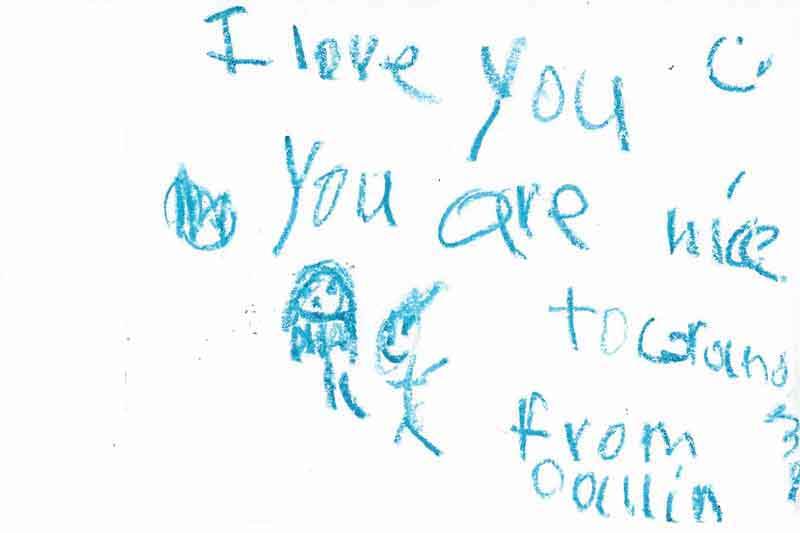 I love you
you are nice
to Grand
from